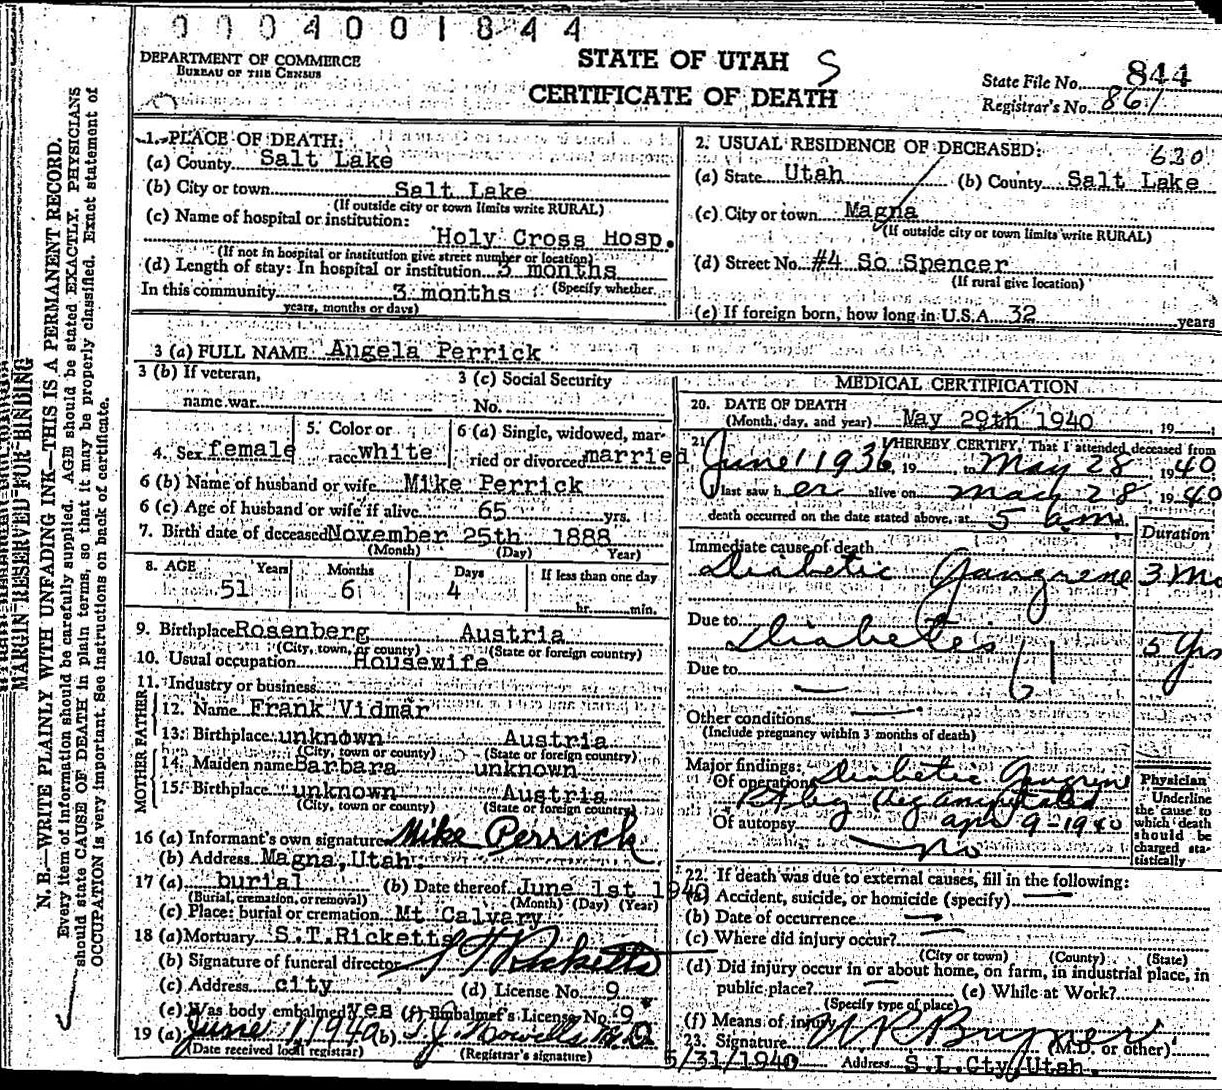 0004001844
DEPARTMENT OF COMMERCE
BUREAU OF THE CENSUS
STATE OF UTAH S
CERTIFICATE OF DEATH
State File No. 844
Registrar's No. 861
MARGIN RESERVED FOR BINDING
N. B.—WRITE PLAINLY WITH UNFADING INK—THIS IS A PERMANENT RECORD.
Every item of information should be carefully supplied. AGE should be stated EXACTLY. PHYSICIANS
should state CAUSE OF DEATH in plain terms, so that it may be properly classified. Exact statement of
OCCUPATION is very important. See instructions on back of certificate.
1. PLACE OF DEATH:
(a) County Salt Lake
(b) City or town Salt Lake
(If outside city or town limits write RURAL)
(c) Name of hospital or institution:
Holy Cross Hosp.
(If not in hospital or institution give street number or location)
(d) Length of stay: In hospital or institution 3 months
(Specify whether
In this community 3 months
years, months or days)
2. USUAL RESIDENCE OF DECEASED: 630
(a) State Utah (b) County Salt Lake
(c) City or town Magna
(If outside city or town limits write RURAL)
(d) Street No. #4 So Spencer
(If rural give location)
(e) If foreign born, how long in U.S.A. 32 years
3 (a) FULL NAME Angela Perrick
3 (b) If veteran,
name war
3 (c) Social Security
No.
4. Sex female
5. Color or
race white
6 (a) Single, widowed, mar-
ried or divorced married
6 (b) Name of husband or wife Mike Perrick
6 (c) Age of husband or wife if alive 65 yrs.
7. Birth date of deceased November 25th 1888
(Month) (Day) Year)
8. AGE Years Months Days If less than one day
51 6 4 hr. min.
9. Birthplace Rosenberg Austria
(City, town, or county) (State or foreign country)
10. Usual occupation Housewife
11. Industry or business
FATHER
12. Name Frank Vidmar
13. Birthplace unknown Austria
(City, town or county) (State or foreign country)
MOTHER
14. Maiden name Barbara unknown
15. Birthplace unknown Austria
(City, town or county) (State or foreign country)
16 (a) Informant's own signature Mike Perrick
(b) Address Magna, Utah
17 (a) burial (b) Date thereof June 1st 1940
(Burial, cremation, or removal) (Month) (Day) (Year)
(c) Place: burial or cremation Mt Calvary
18 (a) Mortuary S.T.Ricketts
(b) Signature of funeral director S T Ricketts
(c) Address city (d) License No. 9
(e) Was body embalmed? yes (f) Embalmer's License No. 9
19 (a) June 1, 1940 (b) T. J. Howells M.D.
(Date received local registrar) (Registrar's signature)
MEDICAL CERTIFICATION
20. DATE OF DEATH
(Month, day, and year) May 29th 1940 19
21. I HEREBY CERTIFY, That I attended deceased from
June 1 1936 19 to May 28 1940
I last saw her alive on May 28, 1940
death occurred on the date stated above, at 5 am.
Duration
Immediate cause of death
Diabetic Gangrene 3 Mo
Due to Diabetes 5 yrs
Due to 61
Other conditions
(Include pregnancy within 3 months of death)
Major findings:
Of operation Diabetic Gangrene
Rt leg amputated
Of autopsy apr 9-1940
no
Physician
Underline
the cause to
which death
should be
charged sta-
tistically
22. If death was due to external causes, fill in the following:
(a) Accident, suicide, or homicide (specify)
(b) Date of occurrence
(c) Where did injury occur?
(City or town) (County) (State)
(d) Did injury occur in or about home, on farm, in industrial place, in
public place? (e) While at Work?
(Specify type of place)
(f) Means of injury
23. Signature W R Brymer
(M.D. or other)
5/31/1940 Address S.L.Cty, Utah.